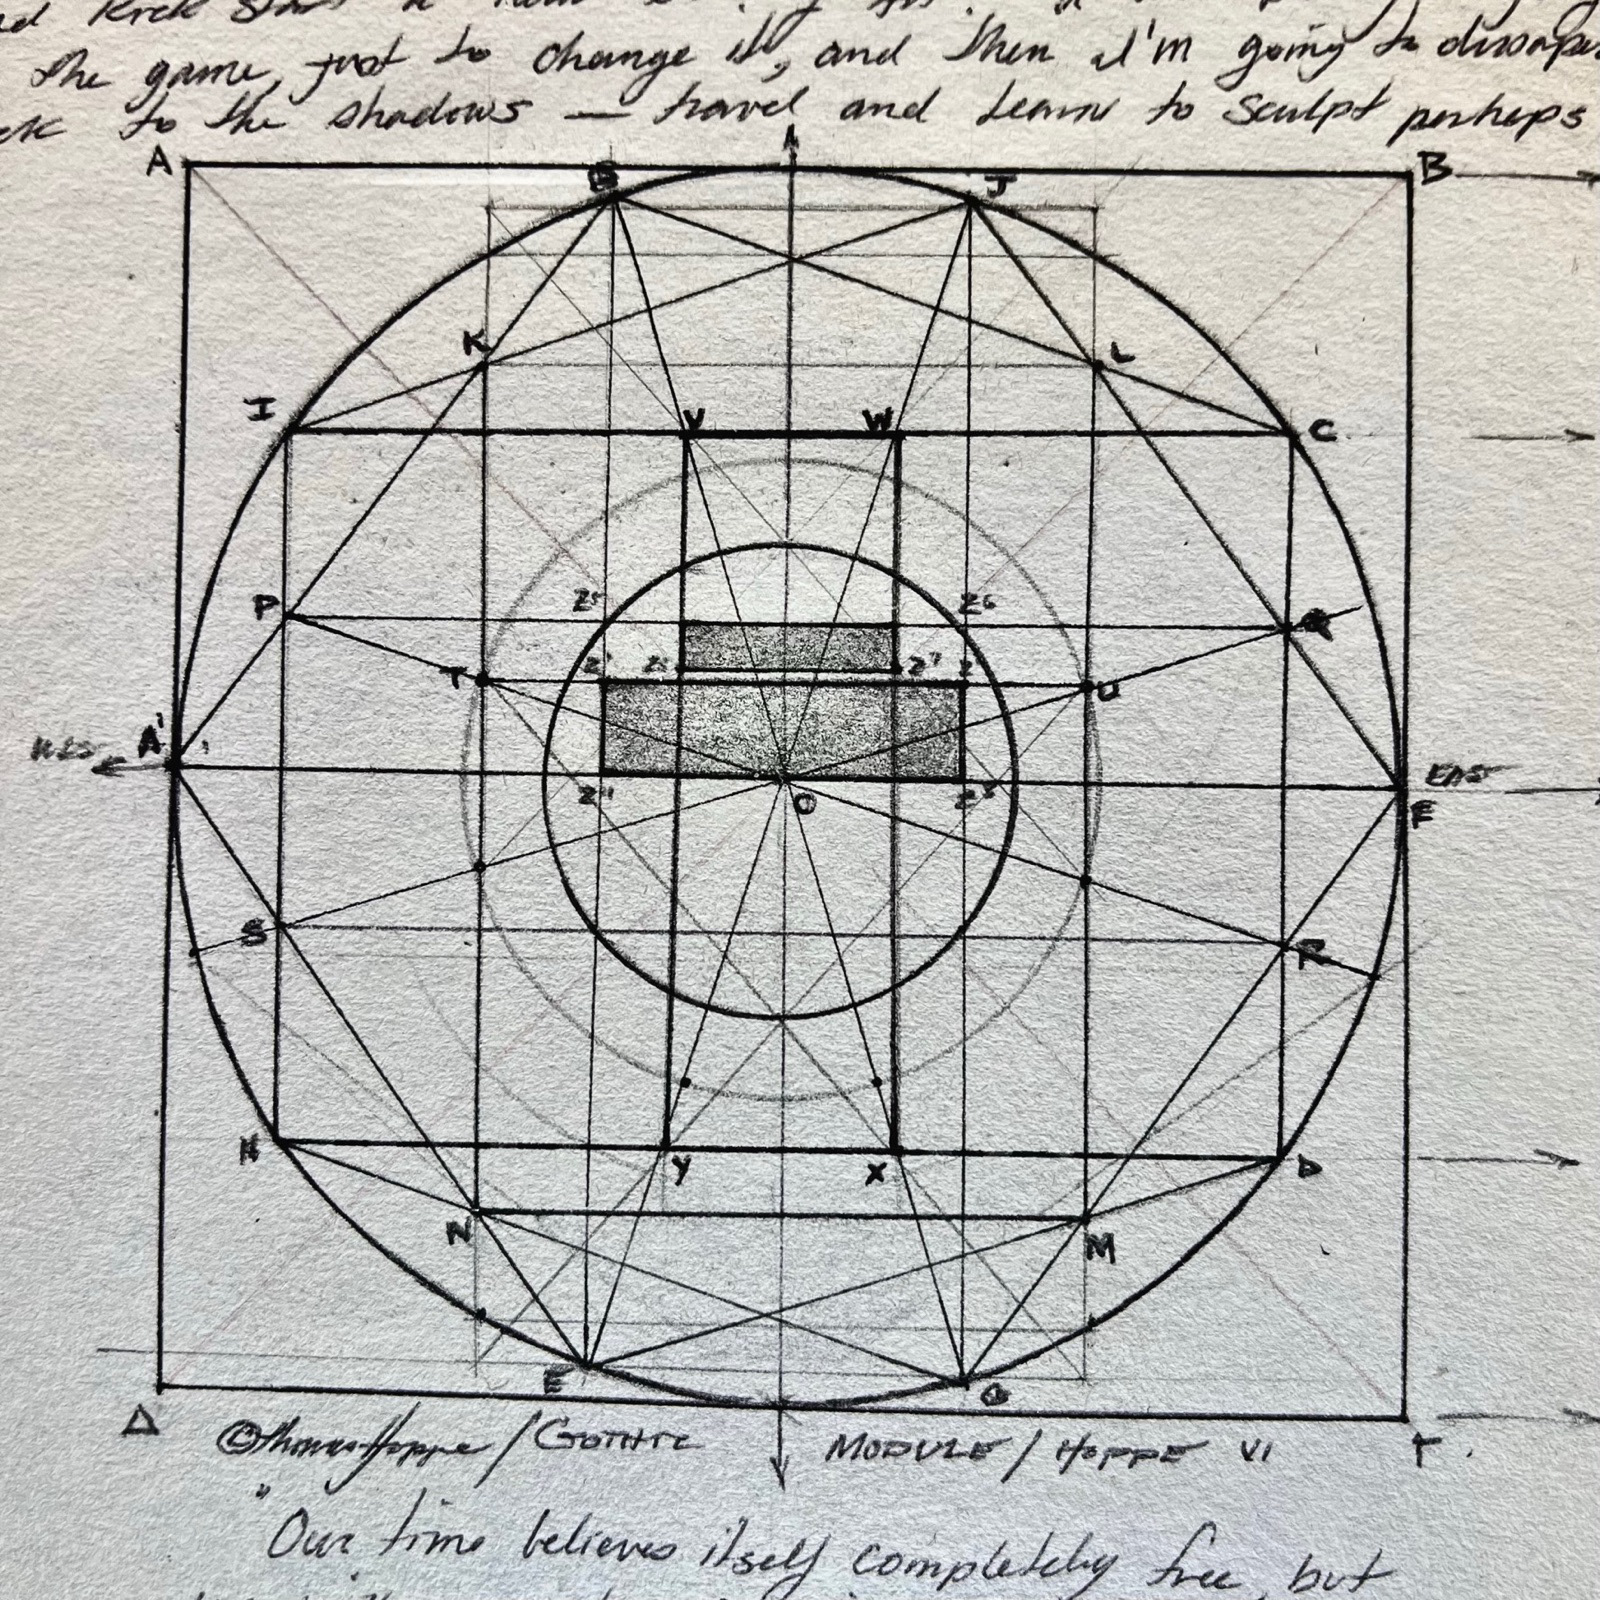 the game, just to change it, and then I'm going to
to the shadows — travel and learn to sculpt perhaps
A B
B J
K L
I V W C
P Z5 Z6 Q
T Z1 Z7 Z U
A' WEST EAST
Z4 O Z3 F
S R
H Y X D
N M
E G
© Thomas Hoppe / GOTHIC MODULE / HOPPE VI
"Our time believes itself completely free, but